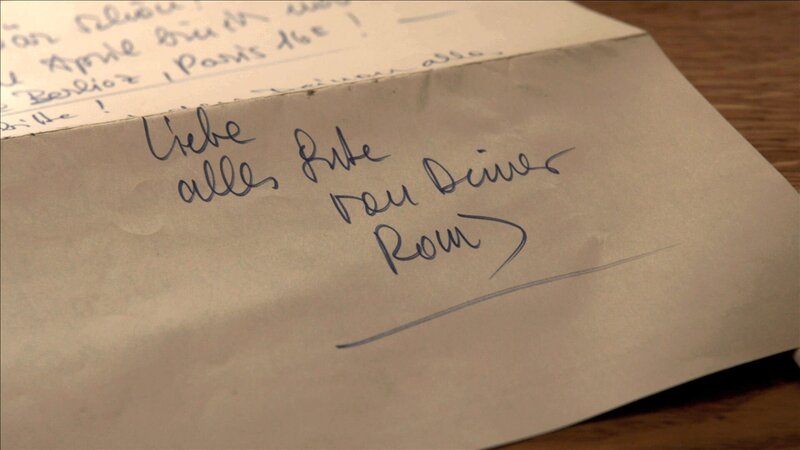 schön!
April bin ich
Berlioz, Paris 16e!
Bitte!
Liebe
alles Gute
von Deiner
Romy